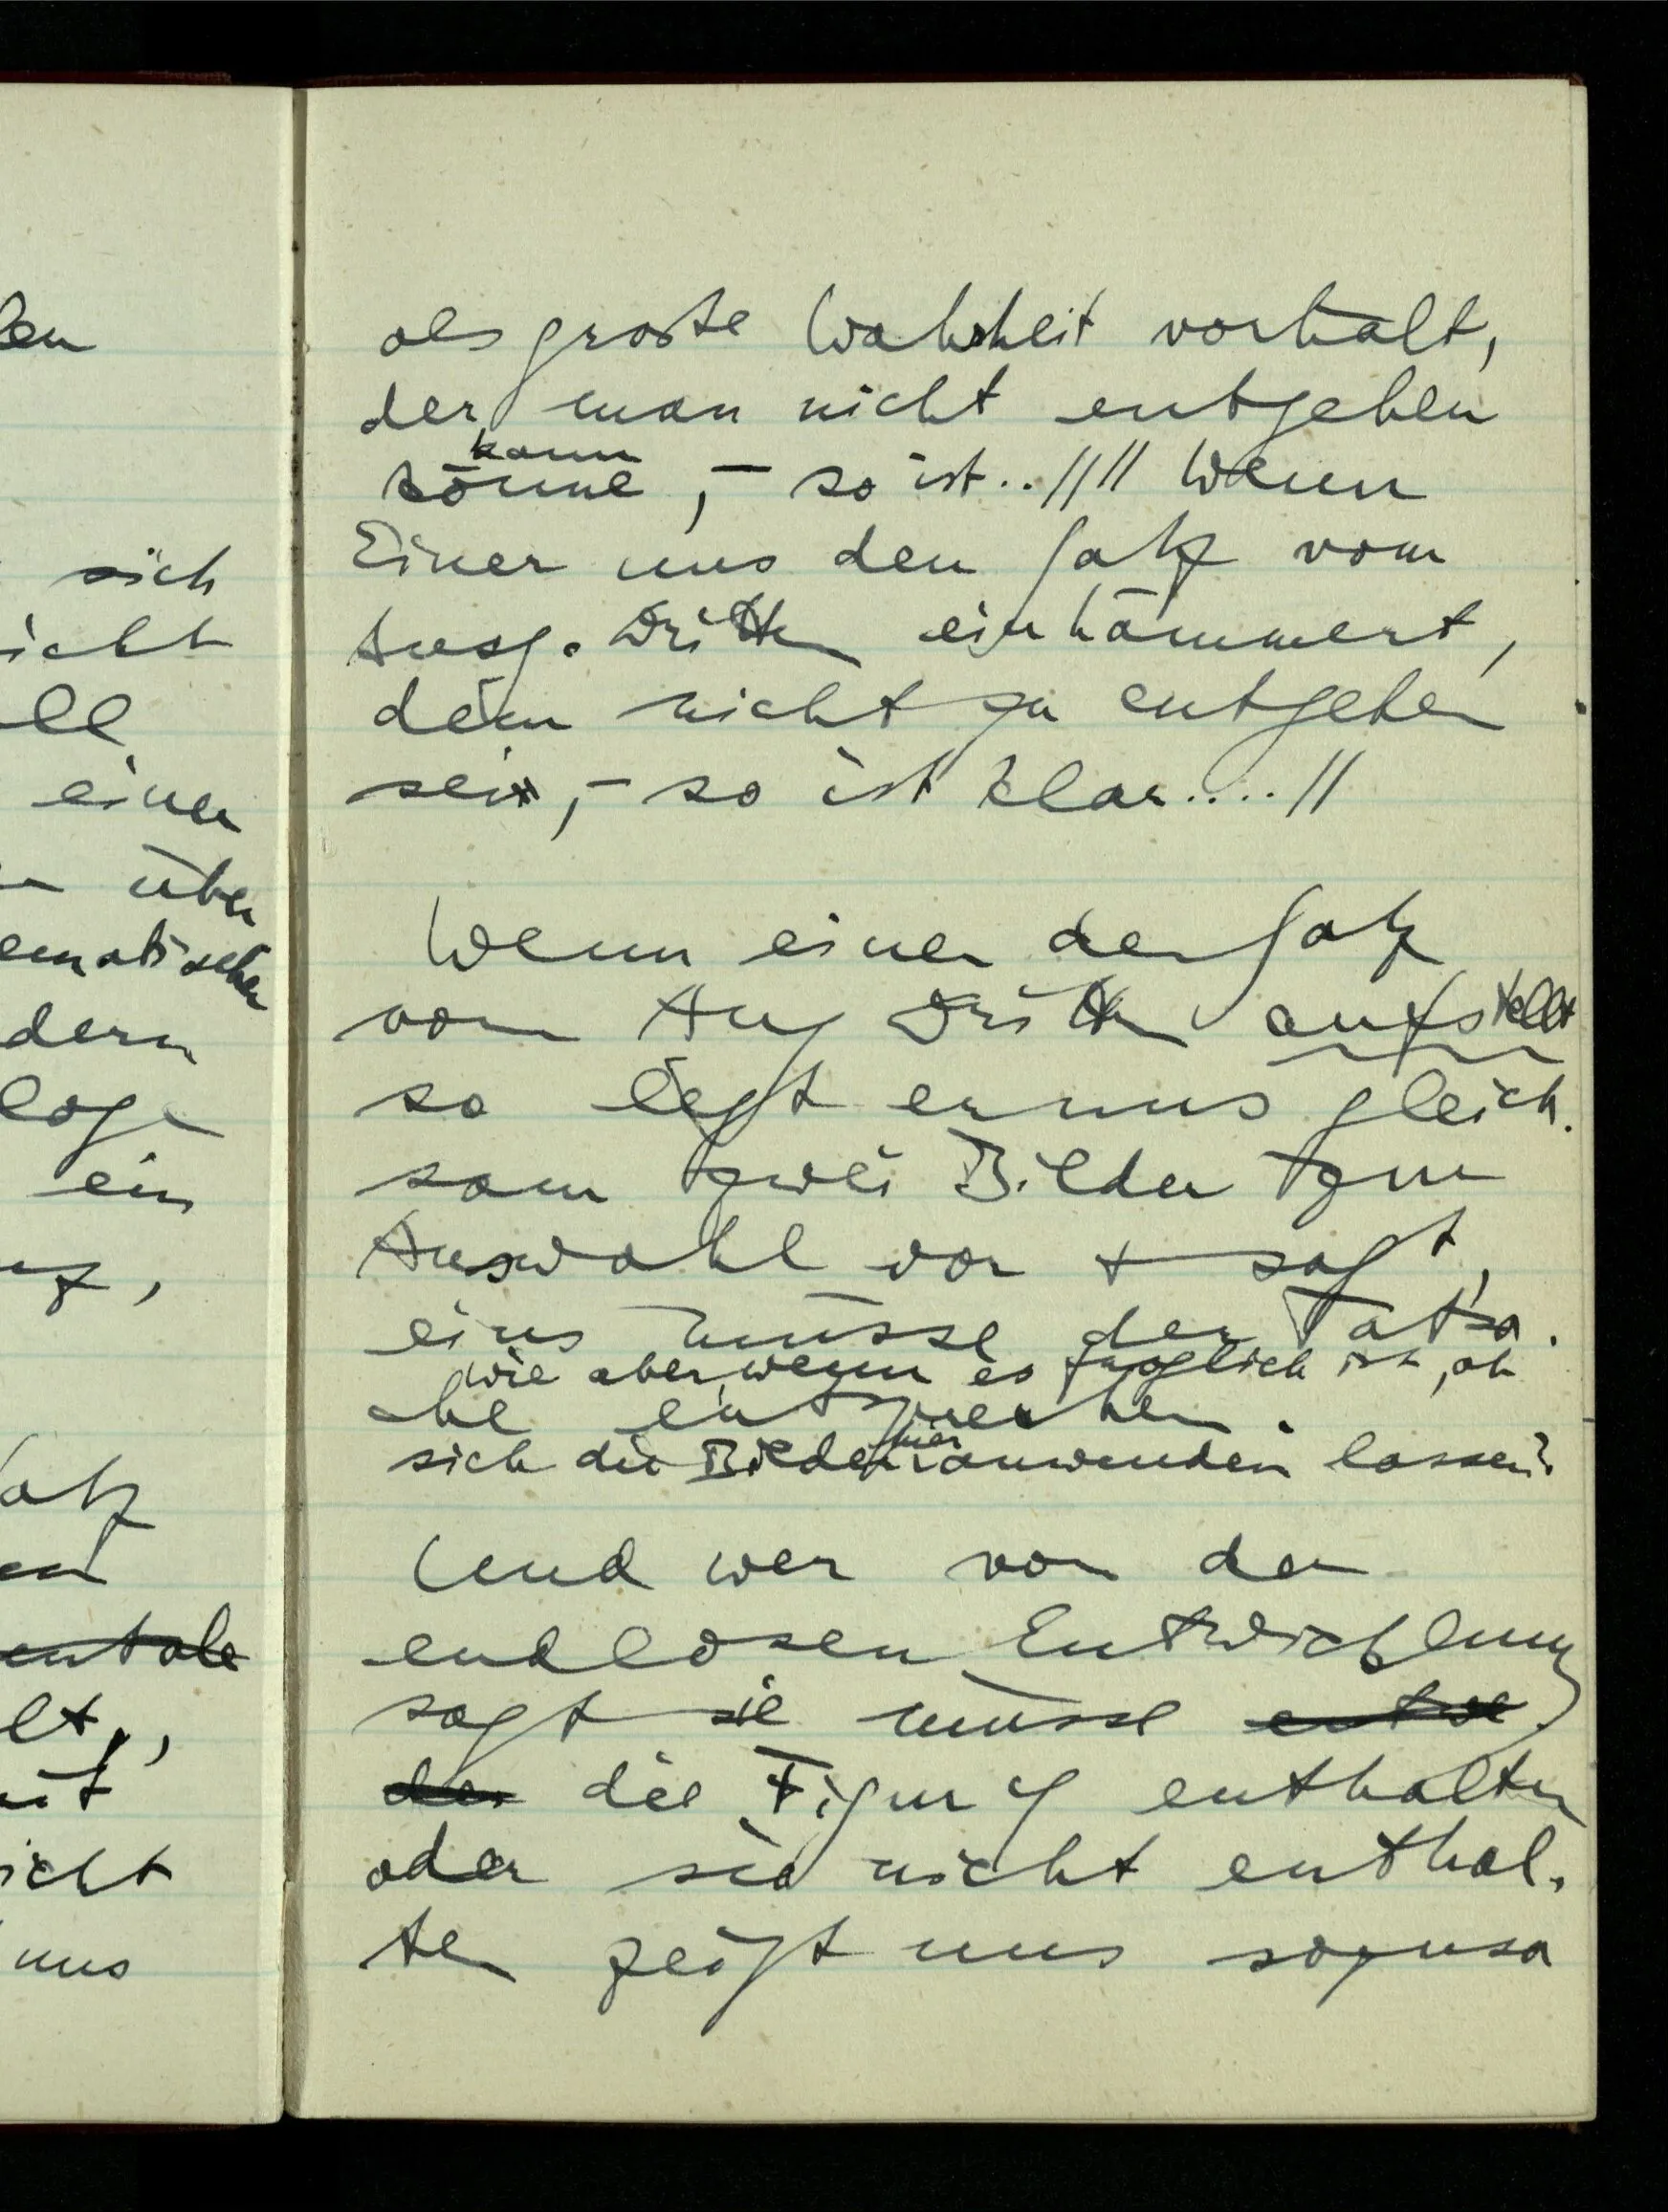 als große Wahrheit vorhält,
der man nicht entgehen
kann
könne, – so ist.. //// Wenn
Einer uns den Satz vom
Ausg. Dritten einhämmert,
dem nicht zu entgehen
sei, – so ist klar.... //
Wenn einer den Satz
vom Ausg Dritten aufstellt
so legt er uns gleich-
sam zwei Bilder zur
Auswahl vor + sagt,
eins müsse der Tatsa-
wie aber, wenn es fraglich ist, ob
che entsprechen.
hier
sich die Bilder anwenden lassen?
Und wer von der
endlosen Entwicklung
sagt sie müsse entwe-
der die Figur φ enthalten
oder sie nicht enthal-
ten zeigt uns sozusa
en
sich
icht
ll
einer
über
ematischen
dern
loge
ein
atz
lt,
icht
uns